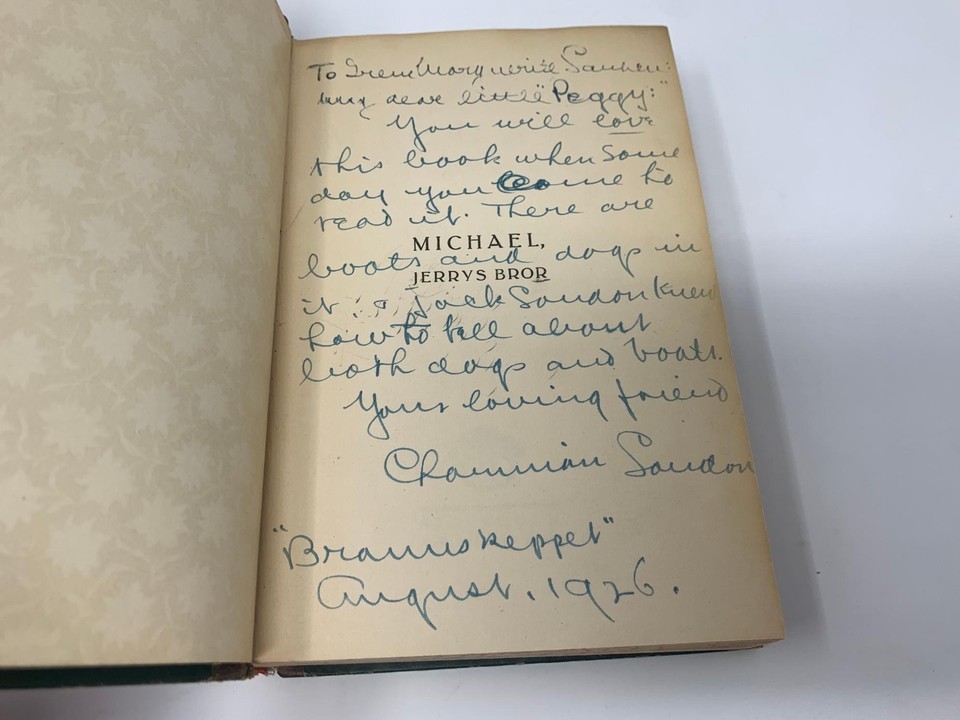 To Irene Marguerite
my dear little "Peggy:"
You will love
this book when some
day you come to
read it. There are
MICHAEL,
boats and dogs in
JERRYS BROR
it : & Jack London knew
how to tell about
both dogs and boats.
Your loving friend
Charmian London
"Brannskeppet"
August, 1926.